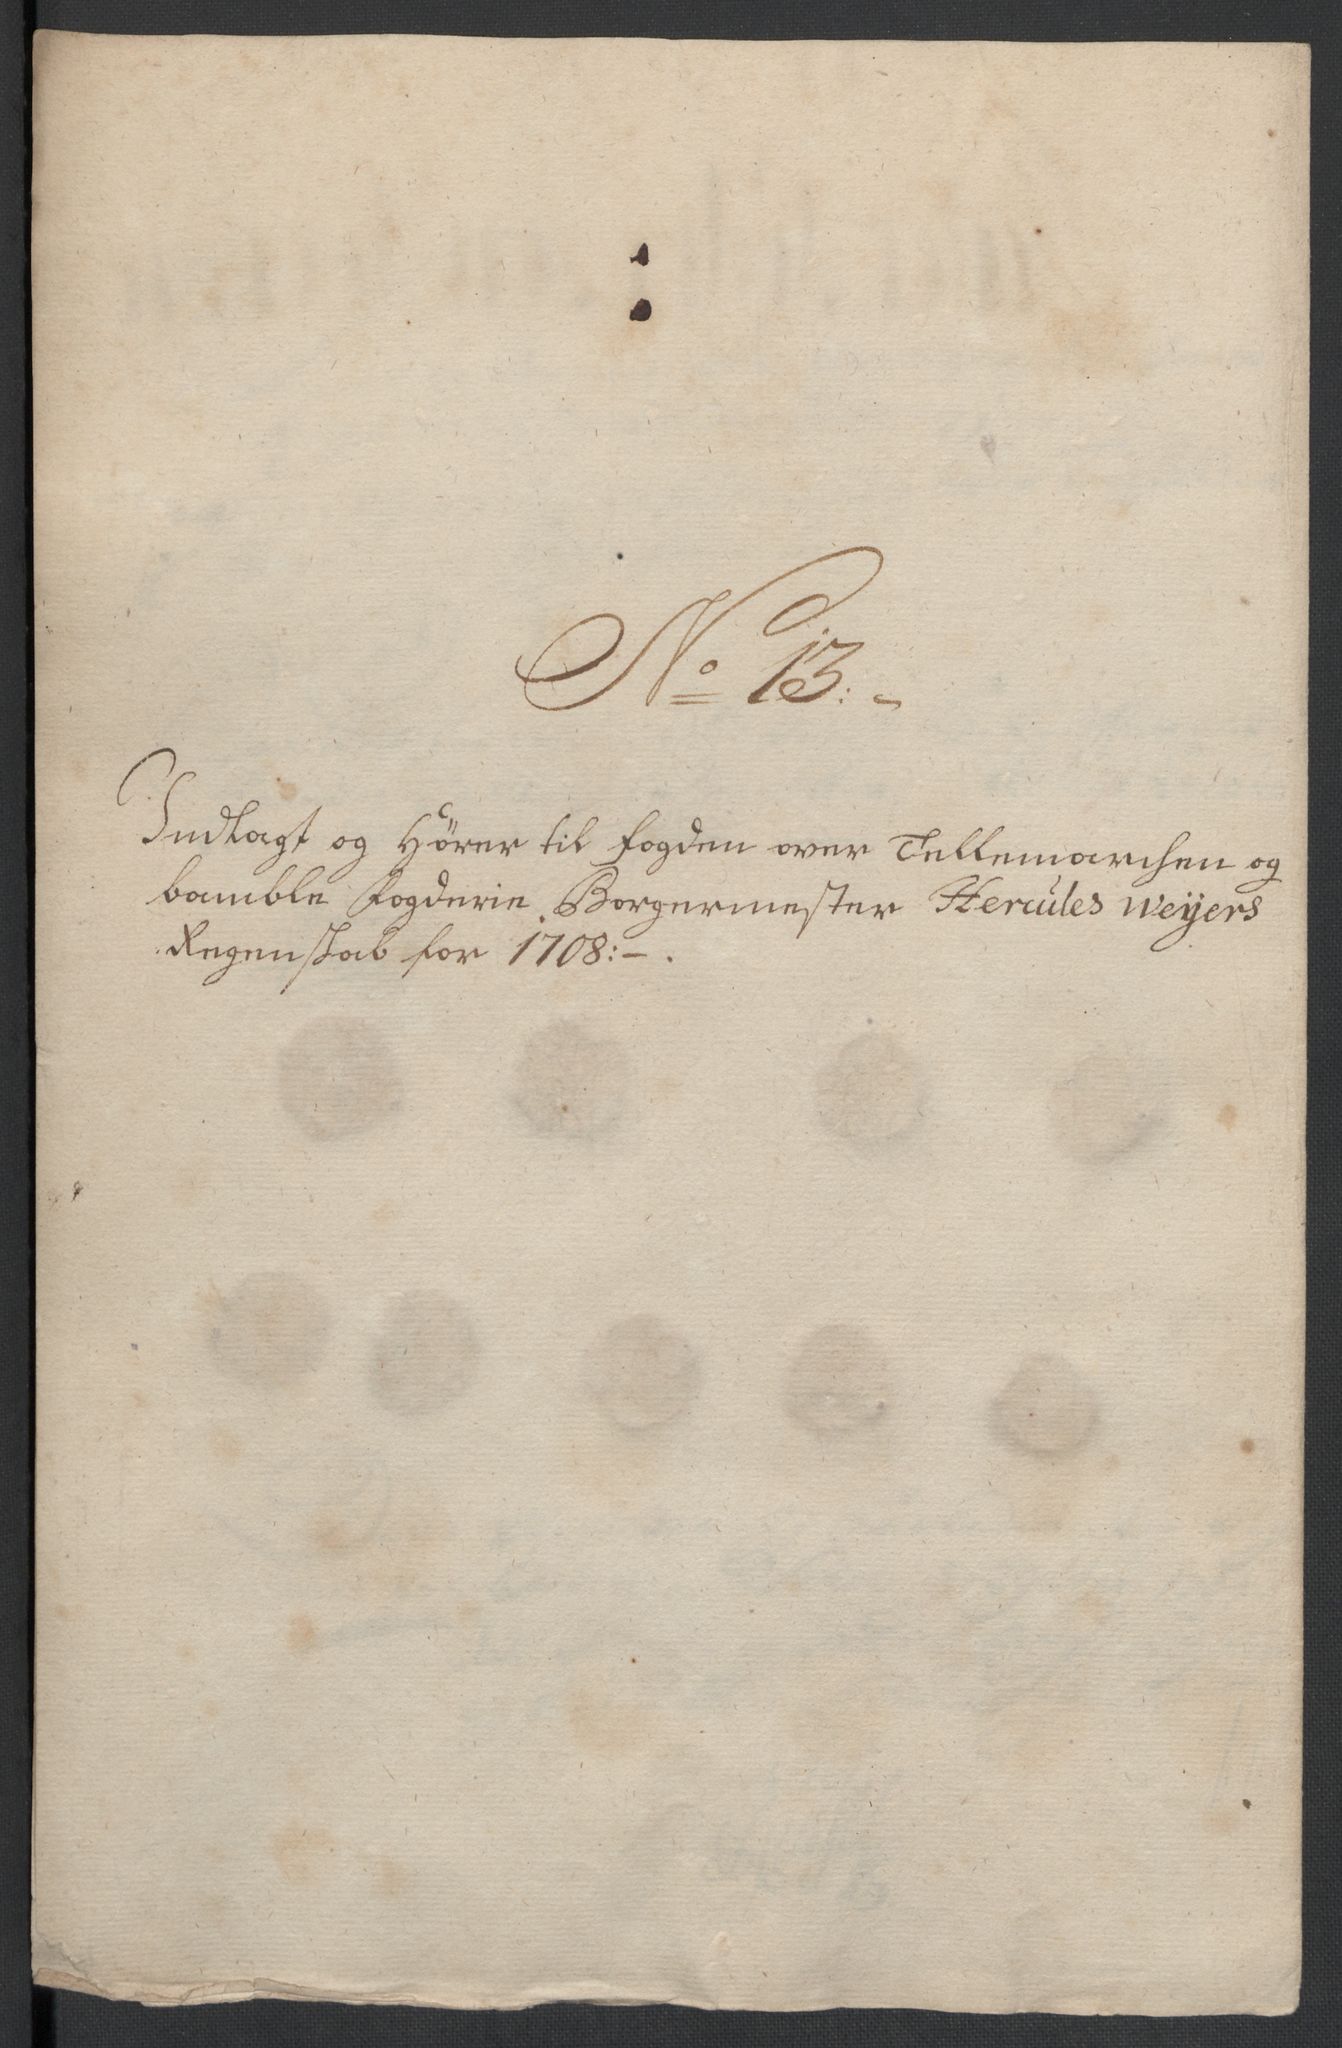 No 13:-
Indlagt og Hörer til fogden over Tellemarchen og
bamble fogderie, Borgermester Hercules Weyers
Regenskab for 1708:-.